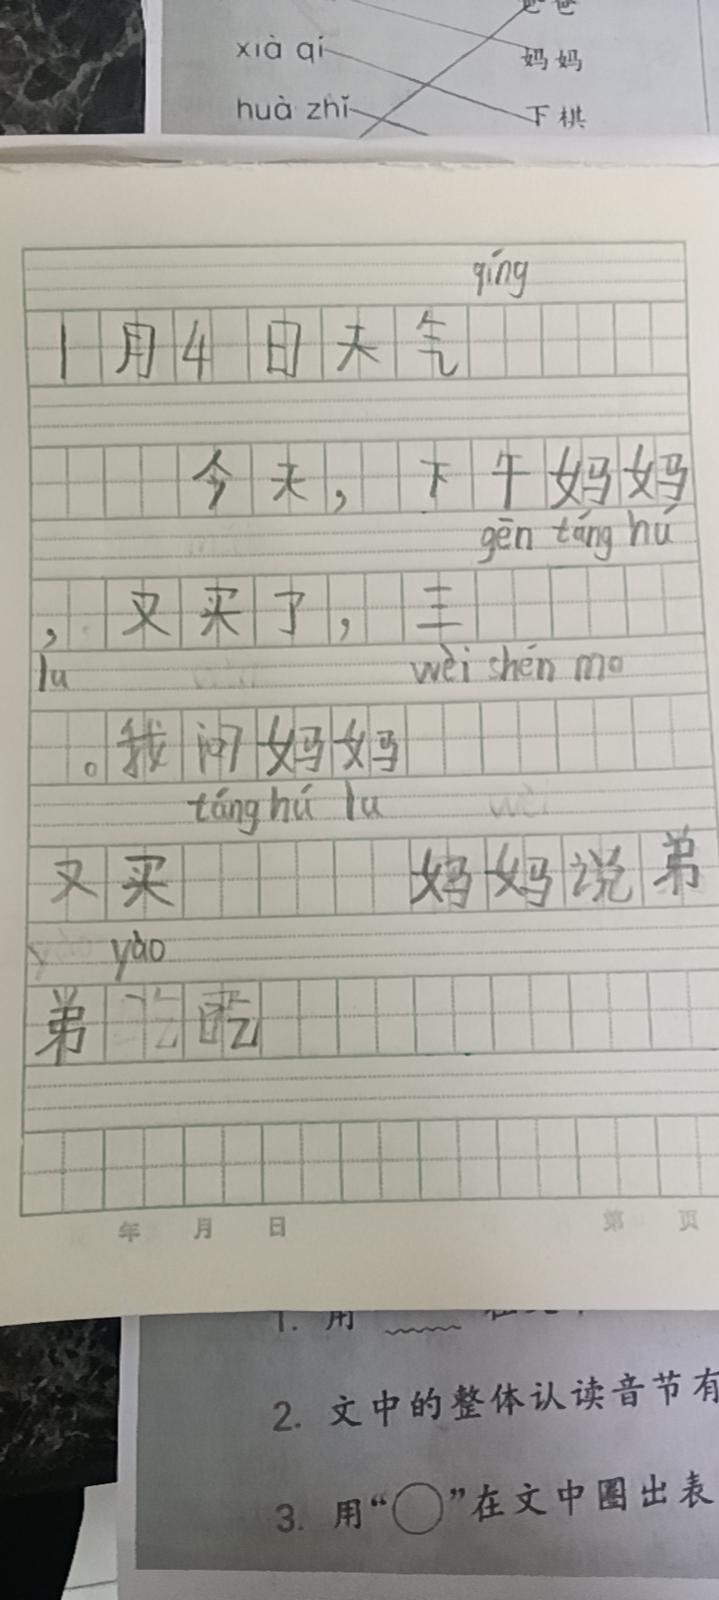 爸爸
xià qí 妈妈
huà zhǐ 下棋
qíng
1月4日天气
今天，下午妈妈
gēn táng hú
，又买了，三
lu wèi shén mo
。我问妈妈
táng hú lu
又买 妈妈说弟
yào
弟吃
年 月 日 第 页
1. 用
2. 文中的整体认读音节有
3. 用“○”在文中圈出表